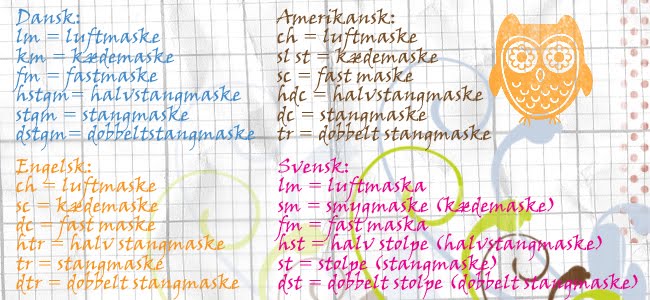 Dansk:
lm = luftmaske
km = kædemaske
fm = fastmaske
hstgm = halvstangmaske
stgm = stangmaske
dstgm = dobbeltstangmaske
Amerikansk:
ch = luftmaske
sl st = kædemaske
sc = fast maske
hdc = halvstangmaske
dc = stangmaske
tr = dobbelt stangmaske
Engelsk:
ch = luftmaske
sc = kædemaske
dc = fast maske
htr = halv stangmaske
tr = stangmaske
dtr = dobbelt stangmaske
Svensk:
lm = luftmaska
sm = smygmaske (kædemaske)
fm = fast maska
hst = halv stolpe (halvstangmaske)
st = stolpe (stangmaske)
dst = dobbelt stolpe (dobbelt stangmaske)